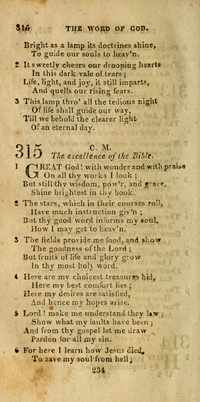 315 THE WORD OF GOD.
Bright as a lamp its doctrines shine,
To guide our souls to heav'n.
2 It sweetly cheers our drooping hearts
In this dark vale of tears;
Life, light, and joy, it still imparts,
And quells our rising fears.
3 This lamp thro' all the tedious night
Of life shall guide our way,
Till we behold the clearer light
Of an eternal day.
315 C. M.
The excellence of the Bible.
1 GREAT God! with wonder and with praise
On all thy works I look;
But still thy wisdom, pow'r, and grace,
Shine brightest in thy book.
2 The stars, which in their courses roll,
Have much instruction giv'n;
But thy good word informs my soul,
How I may get to heav'n.
3 The fields provide me food, and show
The goodness of the Lord;
But fruits of life and glory grow
In thy most holy word.
4 Here are my choicest treasures hid,
Here my best comfort lies;
Here my desires are satisfied,
And hence my hopes arise.
5 Lord! make me understand thy law;
Show what my faults have been;
And from thy gospel let me draw
Pardon for all my sin.
6 For here I learn how Jesus died,
To save my soul from hell;
234